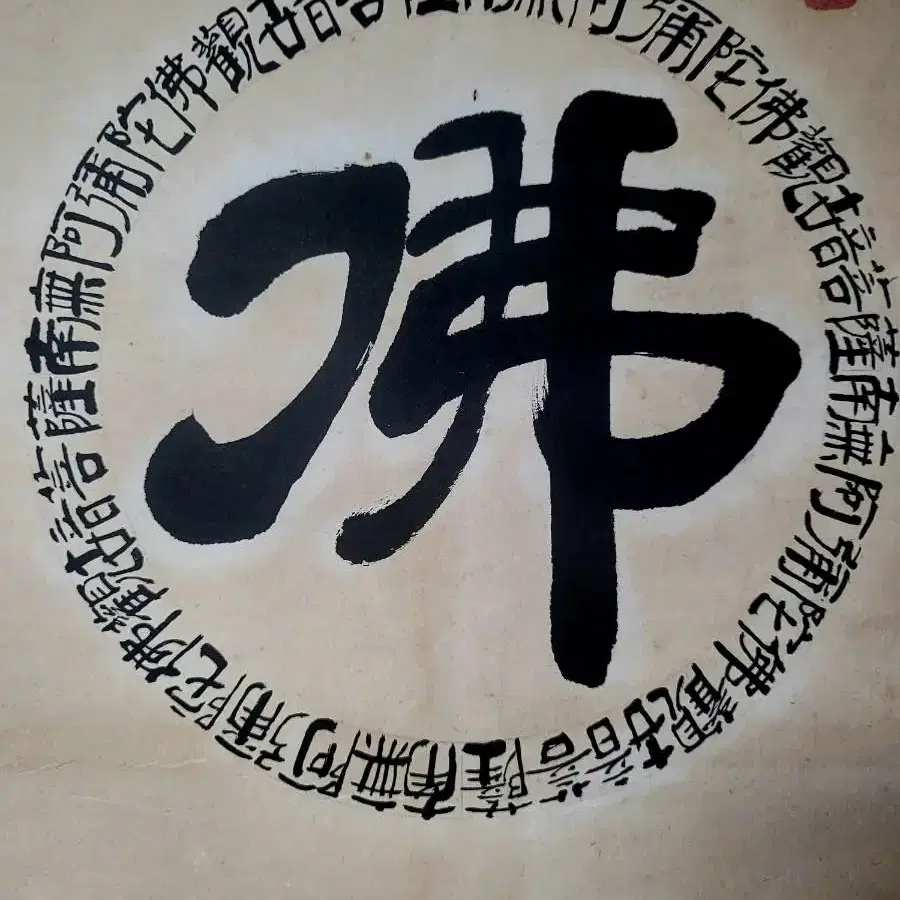 佛
南無阿彌陀佛觀世音菩薩南無阿彌陀佛觀世音菩薩南無阿彌陀佛觀世音菩薩南無阿彌陀佛觀世音菩薩